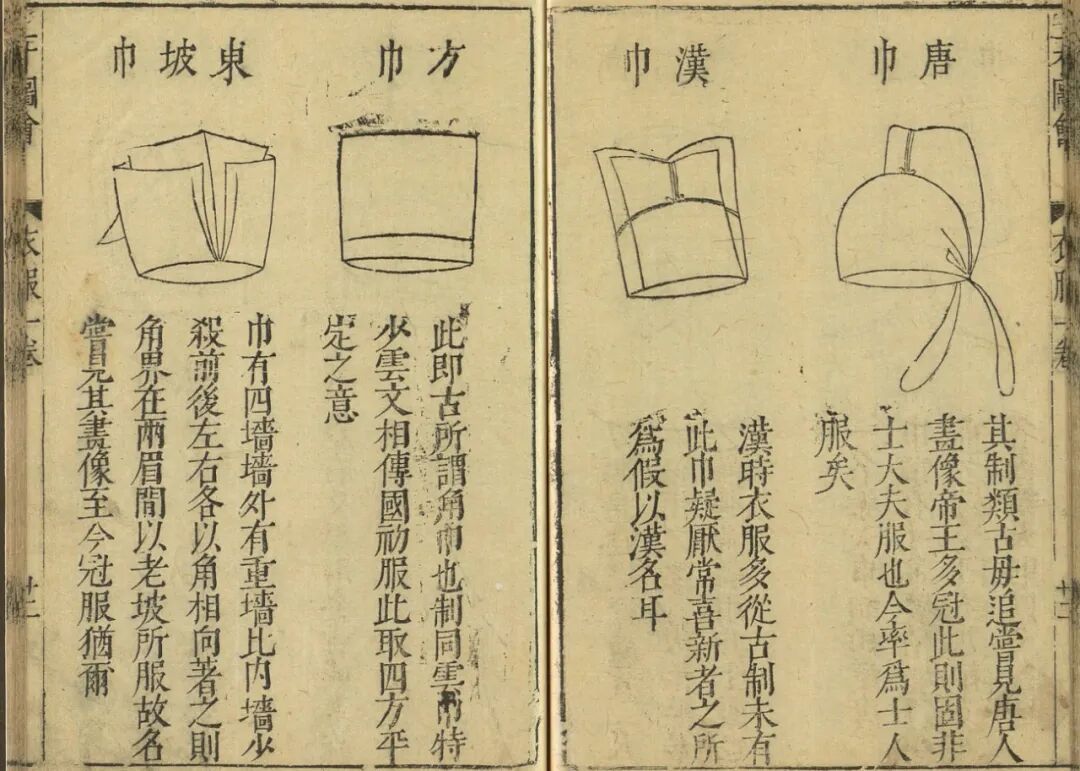 唐巾
其制類古毋追嘗見唐人
畫像帝王多冠此則固非
士大夫服也今率爲士人
服矣
漢巾
漢時衣服多從古制未有
此巾疑厭常喜新者之所
爲假以漢名耳
方巾
此即古所謂角巾也制同雲巾特
少雲文相傳國初服此取四方平
定之意
東坡巾
巾有四墻墻外有重墻比內墻少
殺前後左右各以角相向著之則
角界在兩眉間以老坡所服故名
嘗見其畫像至今冠服猶爾
圖會
衣服一卷
廿二